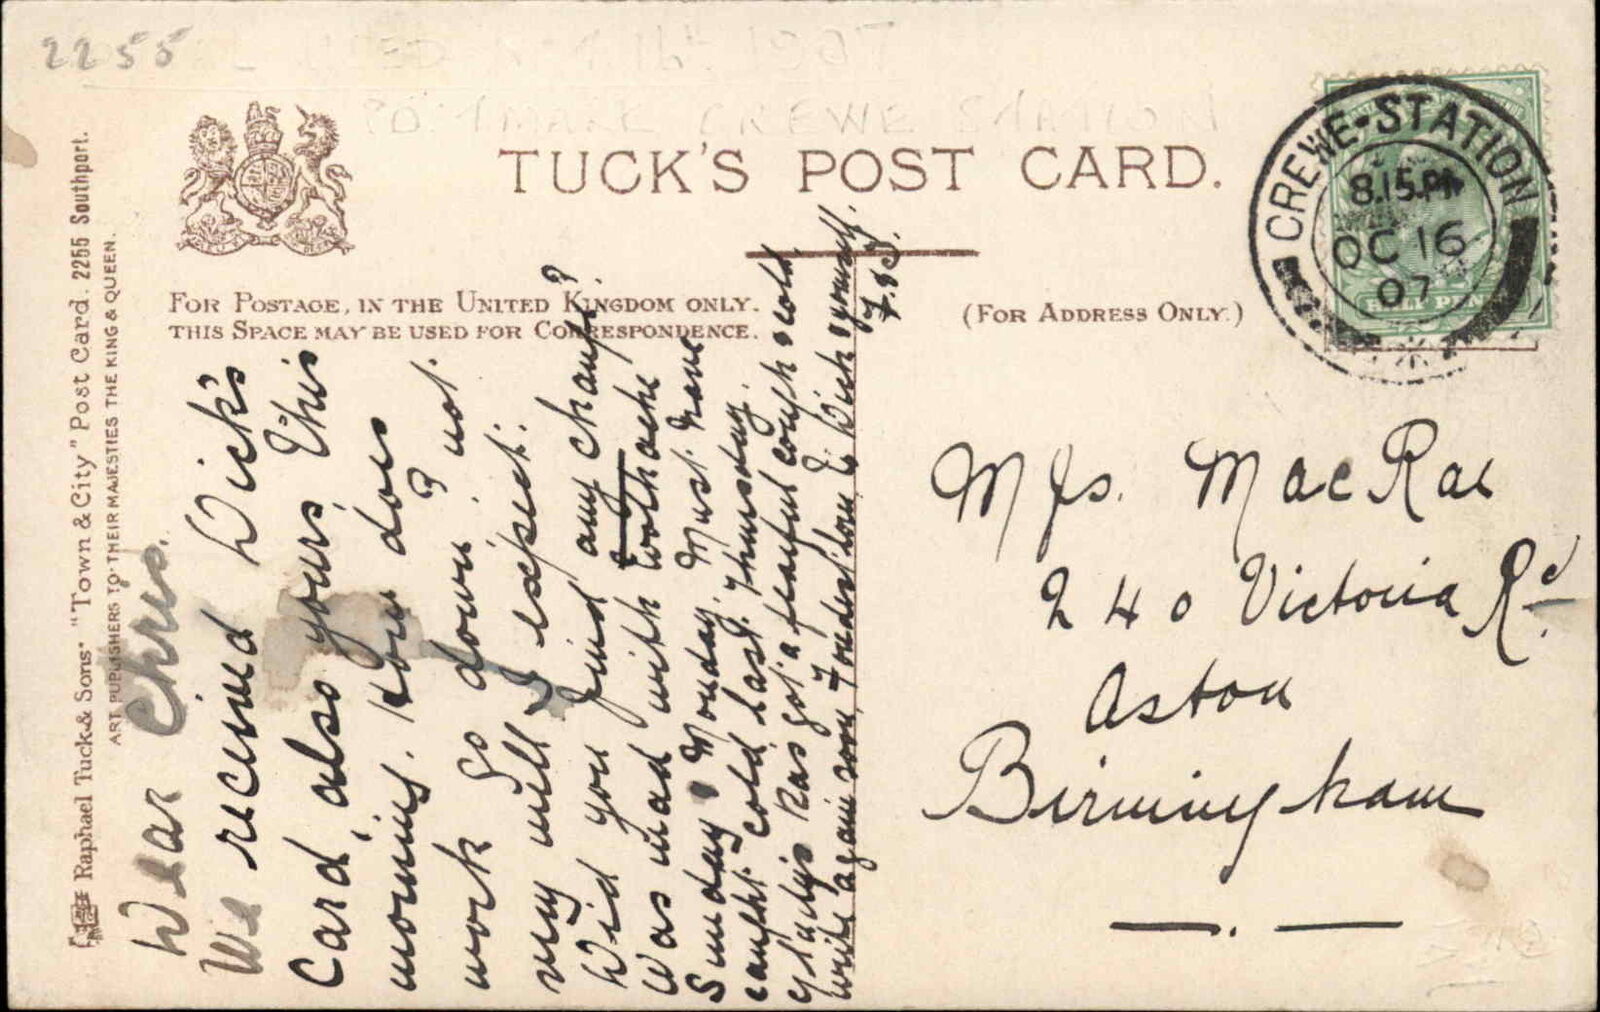 2255
1907
POSTMARK CREWE STATION
TUCK'S POST CARD.
FOR POSTAGE, IN THE UNITED KINGDOM ONLY.
THIS SPACE MAY BE USED FOR CORRESPONDENCE.
(FOR ADDRESS ONLY.)
CREWE-STATION
8.15 PM
OC 16
07
HALF PENNY
Raphael Tuck & Sons' "Town & City" Post Card. 2255 Southport.
ART PUBLISHERS TO THEIR MAJESTIES THE KING & QUEEN.
Dear Chris.
We received Dick's
Card, also yours, this
morning. How does
work go down? not
very well, I expect.
Did you find any change?
Was mad with toothache
Sunday & Monday. Must have
caught cold last Thursday.
Gladys has got a fearful cough & cold.
Write again soon, Fondest love to Dick & yourself.
Mrs. MacRae
240 Victoria Rd.
Aston
Birmingham